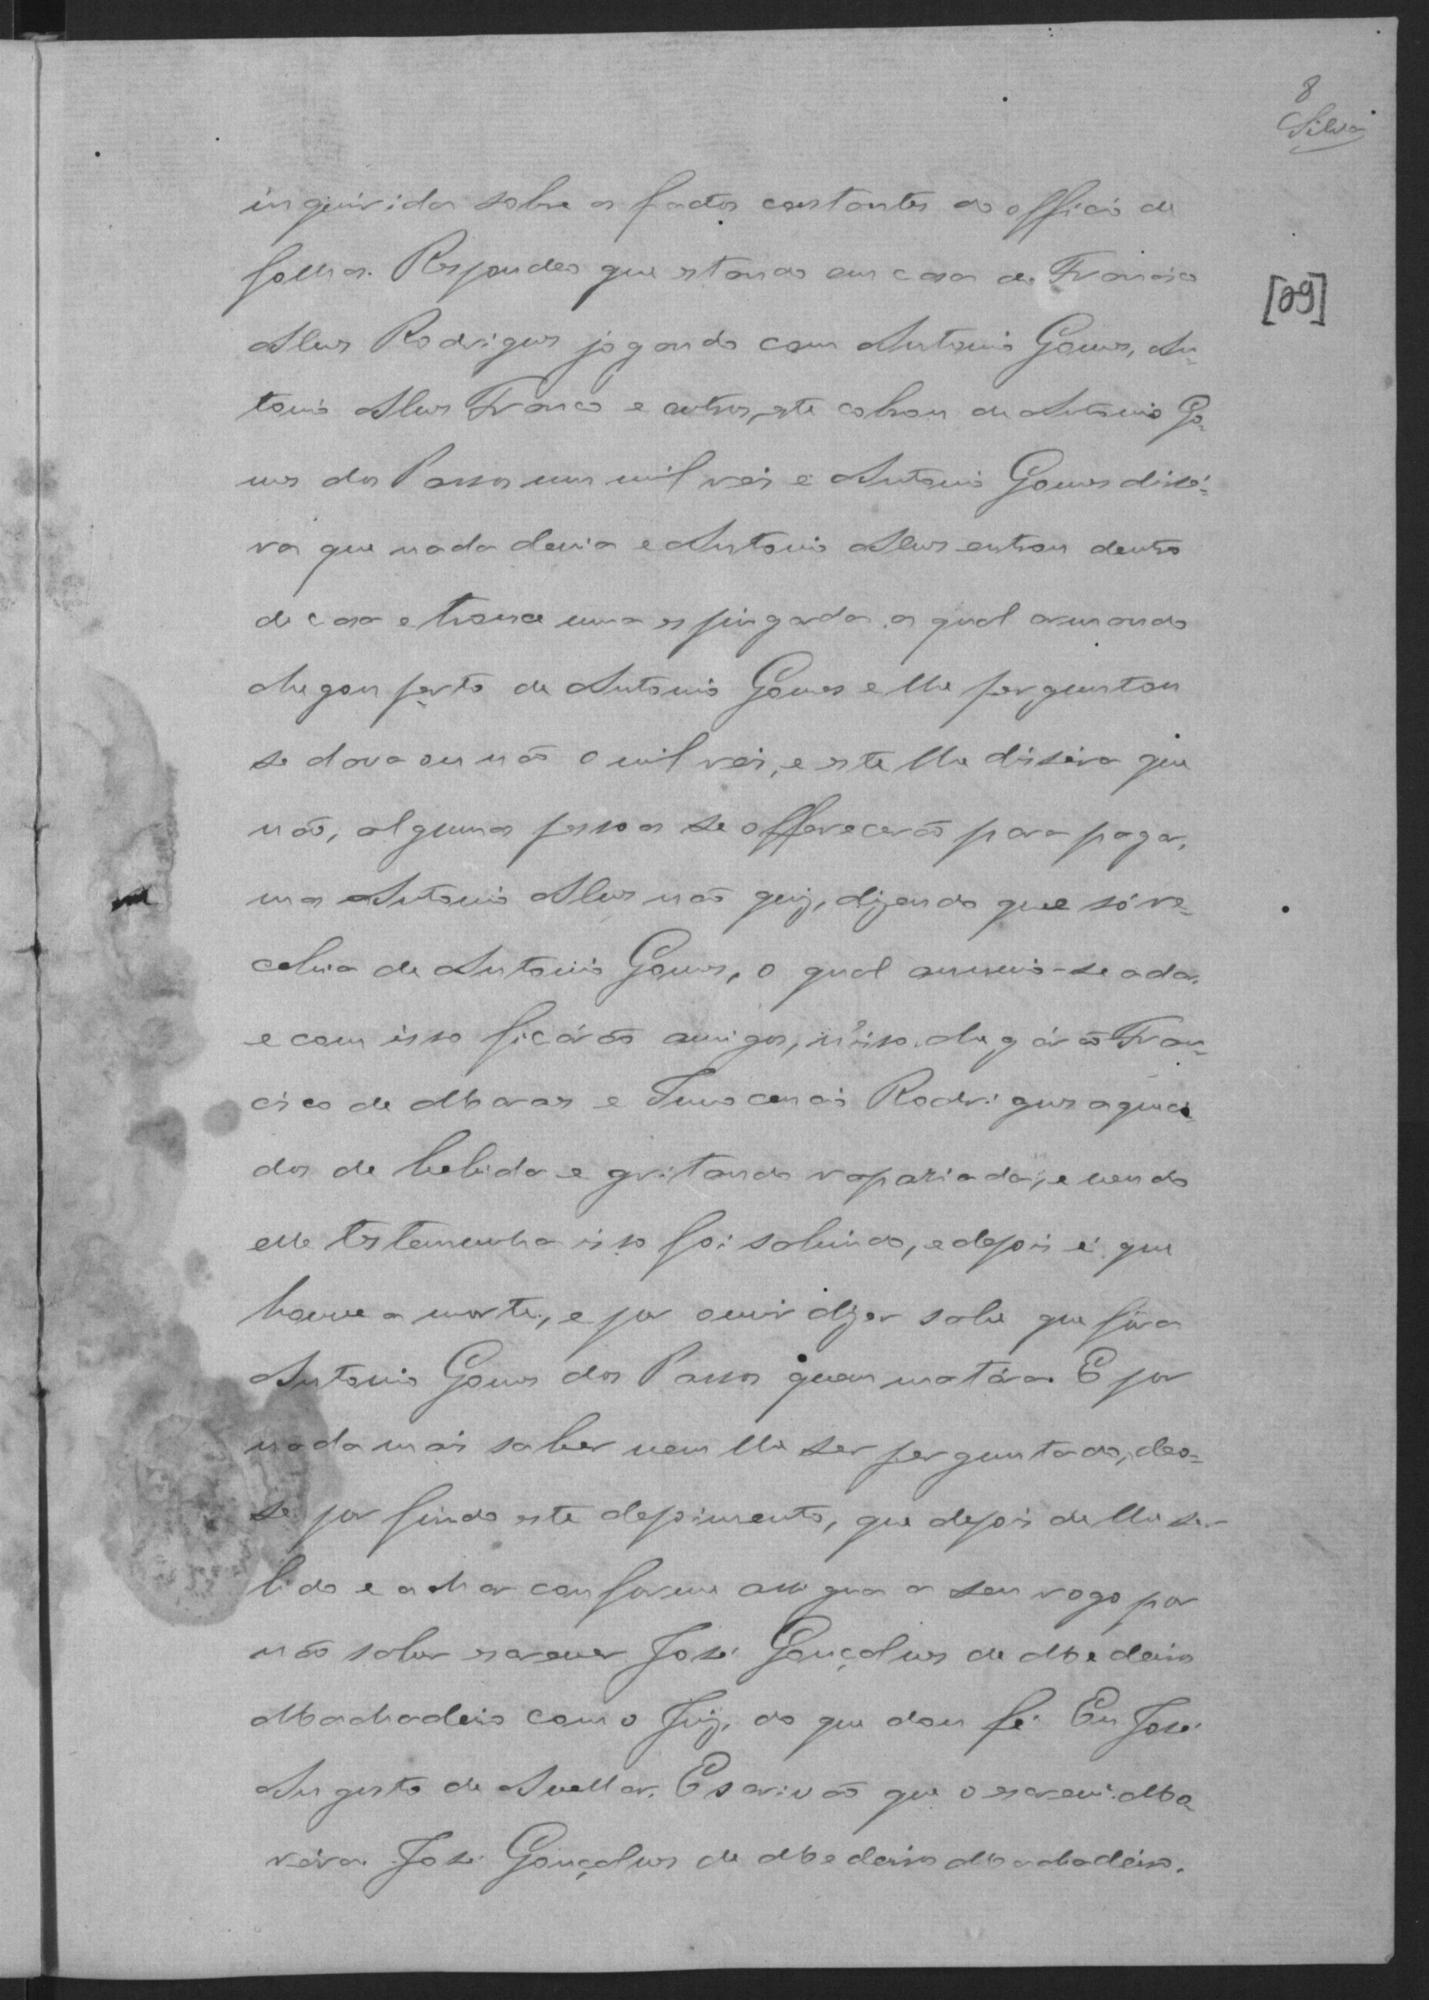 8
Silva
[29]
inquirida sobre os factos constantes do officio de
folhas. Respondeo que estando em casa de Francisco
Alves Rodrigues jogando com Antonio Gomes, An-
tonio Alves Franco e outros, este cobrou de Antonio Go-
mes dos Passos um mil reis e Antonio Gomes dissé-
ra que nada devia e Antonio Alves entrou dentro
de casa e trouce uma espingarda, a qual armando
chegou perto de Antonio Gomes e lhe perguntou
se dava ou não o mil reis, e este lhe dissera que
não, algumas pessoas se offerecerão para pagar,
mas Antonio Alves não quiz, dizendo que só re-
cebia de Antonio Gomes, o qual annuio-se a dar,
e com isso ficárão amigos, n'isso chegárão Fran-
cisco de Moraes e Innocencio Rodrigues aqueci-
dos de bebida e gritando rapaziada, e vendo
elle testemunha isso foi sahindo, e depois é que
houve a morte, e por ouvir dizer sabe que fôra
Antonio Gomes dos Passos quem matára. E por
nada mais saber nem lhe ser perguntado, deo-
se por findo este depoimento, que depois de lhe ser
lido e achar conforme assigna a seu rogo por
não saber escrever José Gonçalves de Medeiros
Machadeiro com o Juiz, do que dou fé. Eu José
Augusto de Avellar, Escrivão que o escrevi. Mo-
reira. José Gonçalves de Medeiros Machadeiro.